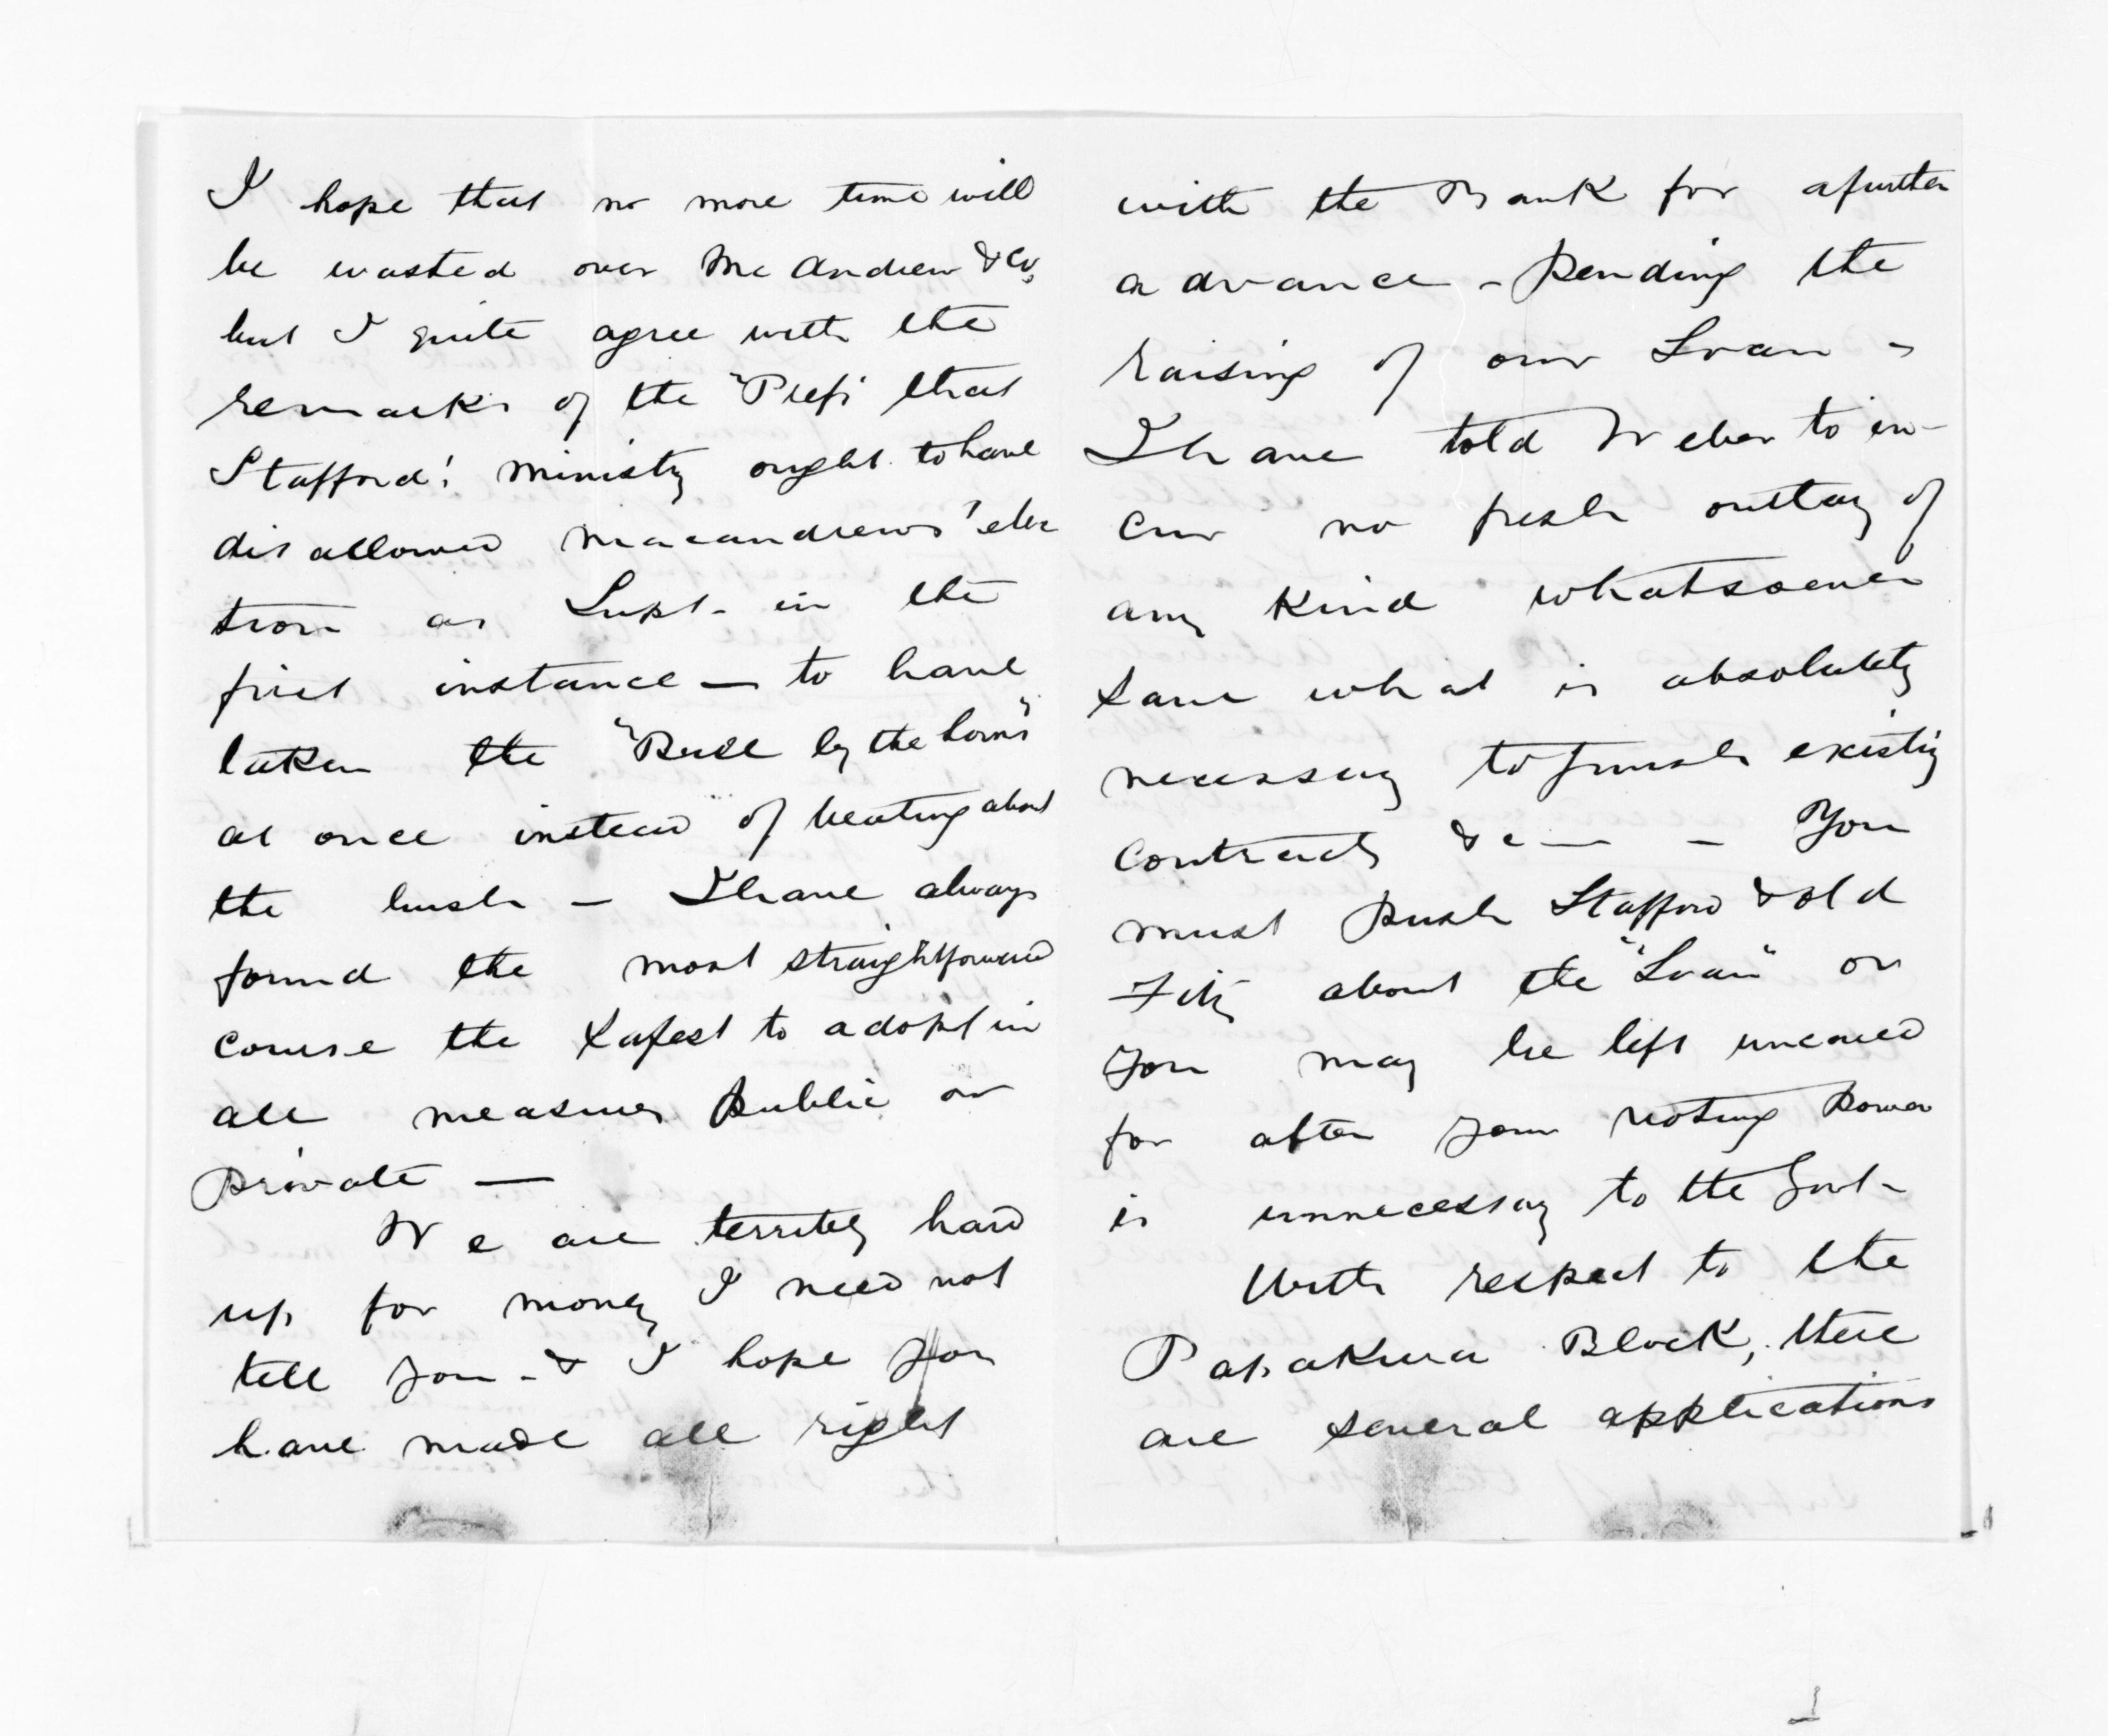 I hope that no more time will
be wasted over McAndrew & Co,
but I quite agree with the
remarks of the "Press" that
Stafford's ministry ought to have
disallowed Macandrews' elec
tion as Supt. in the
first instance — to have
taken the "Bull by the horns"
at once instead of beating about
the bush — I have always
found the most straightforward
course the safest to adopt in
all measures public or
private —
We are terribly hard
up for money I need not
tell you - & I hope you
have made all right
with the Bank for a further
advance - pending the
raising of our Loan -
I have told Weber to in-
cur no fresh outlay of
any kind whatsoever
save what is absolutely
necessary to finish existing
contracts &c — - You
must push Stafford & old
Fitz about the "Loan" or
you may be left uncared
for after your voting power
is unnecessary to the Govt -
With respect to the
Papakura Block, there
are several applications